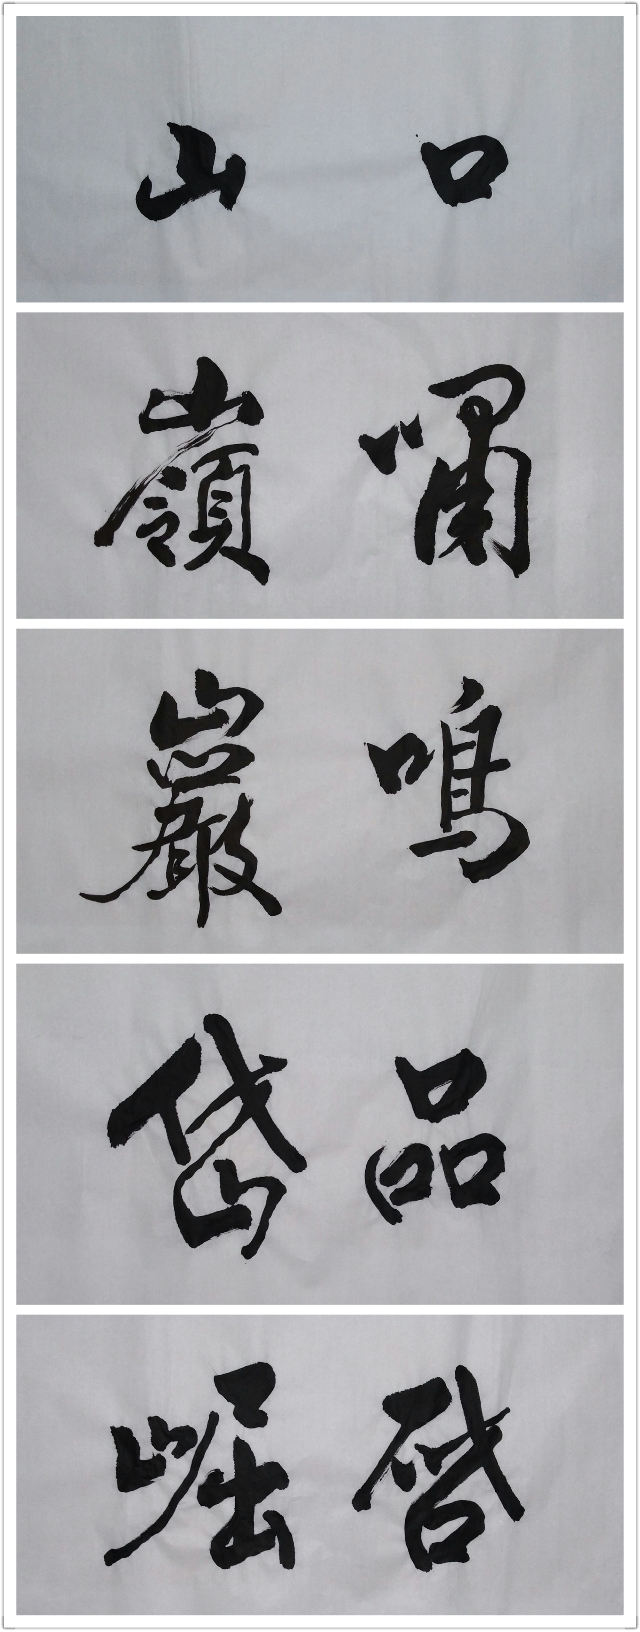 山 口
嶺 嘯
巖 鳴
岱 品
崛 啓